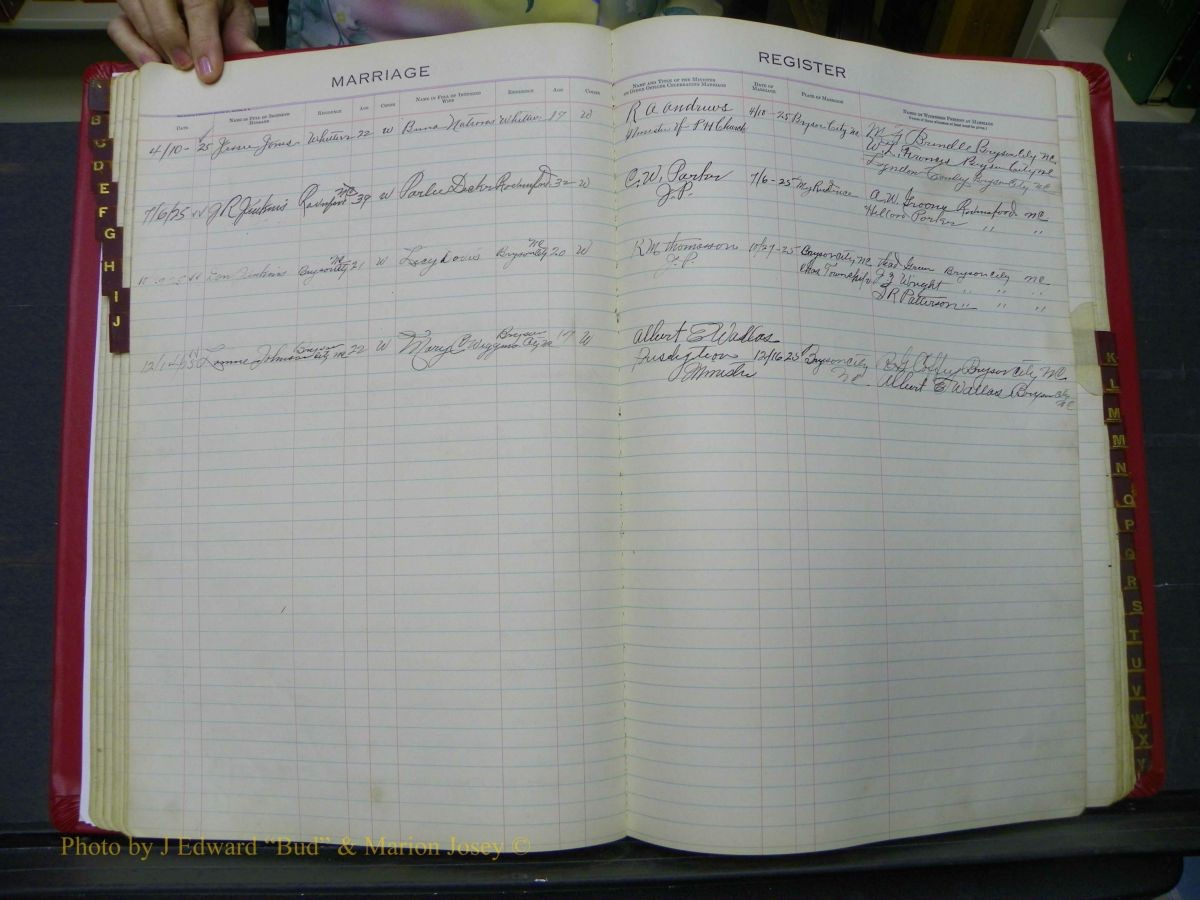 MARRIAGE
REGISTER
DATE NAME IN FULL OF INTENDED HUSBAND RESIDENCE AGE COLOR NAME IN FULL OF INTENDED WIFE RESIDENCE AGE COLOR
NAME AND TITLE OF THE MINISTER OR OTHER OFFICER CELEBRATING MARRIAGE DATE OF MARRIAGE PLACE OF MARRIAGE NAMES OF WITNESSES PRESENT AT MARRIAGE
4/10-25 Jessie Jones Whittier 22 W Whittier 17 W
R A Andrews 4/10-25 Bryson City NC
Minister of P H Church
M. G. Brendle Bryson City NC
W. L. Bryson City NC
Lyndon Bryson City NC
7/6/25 J R Jenkins NC 39 W Parlee 32 W
C. W. Parker 7/6-25 My Residence
J. P.
A. W. NC
Parker " "
Jenkins Bryson City NC 21 W Lucy Davis Bryson City NC 20 W
K M Thomasson 10/27-25 Bryson City NC
J. P. Township
Green Bryson City NC
Wright " "
J R Patterson " "
Johnson Bryson City NC 22 W Mary Wiggins Bryson City NC 17 W
Albert E Wallas
12/16 25 Bryson City NC
Minister
Bryson City NC
Albert E Wallas Bryson City NC
B
C
D
E
F
G
H
I
J
K
L
M
M
N
O
P
Q
R
S
T
U
V
W
X
Y
Photo by J Edward “Bud” & Marion Josey ©